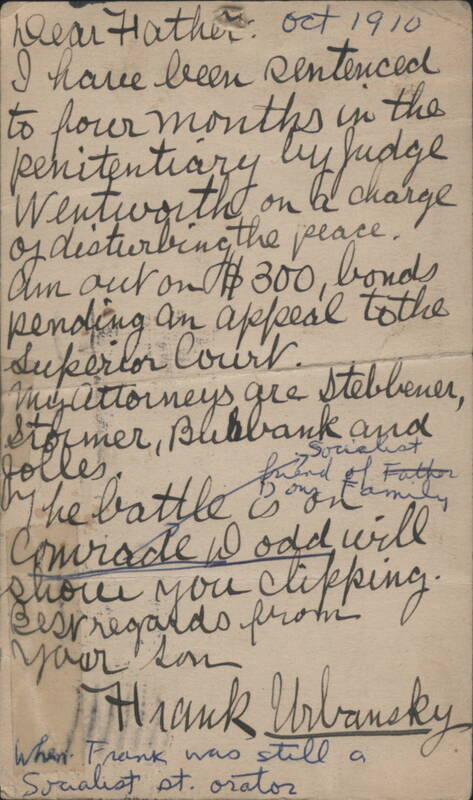 Dear Father: Oct 1910
I have been sentenced
to four months in the
penitentiary by Judge
Wentworth on a charge
of disturbing the peace.
Am out on $300, bonds
pending an appeal to the
Superior Court.
My Attorneys are Stebbener,
Stormer, Bulbank and
Jolles.
Socialist
friend of Father
Dong Family
The battle is on
Comrade Dodd will
show you clipping.
Best regards from
Your son
Frank Urbansky
When Frank was still a
Socialist st. orator